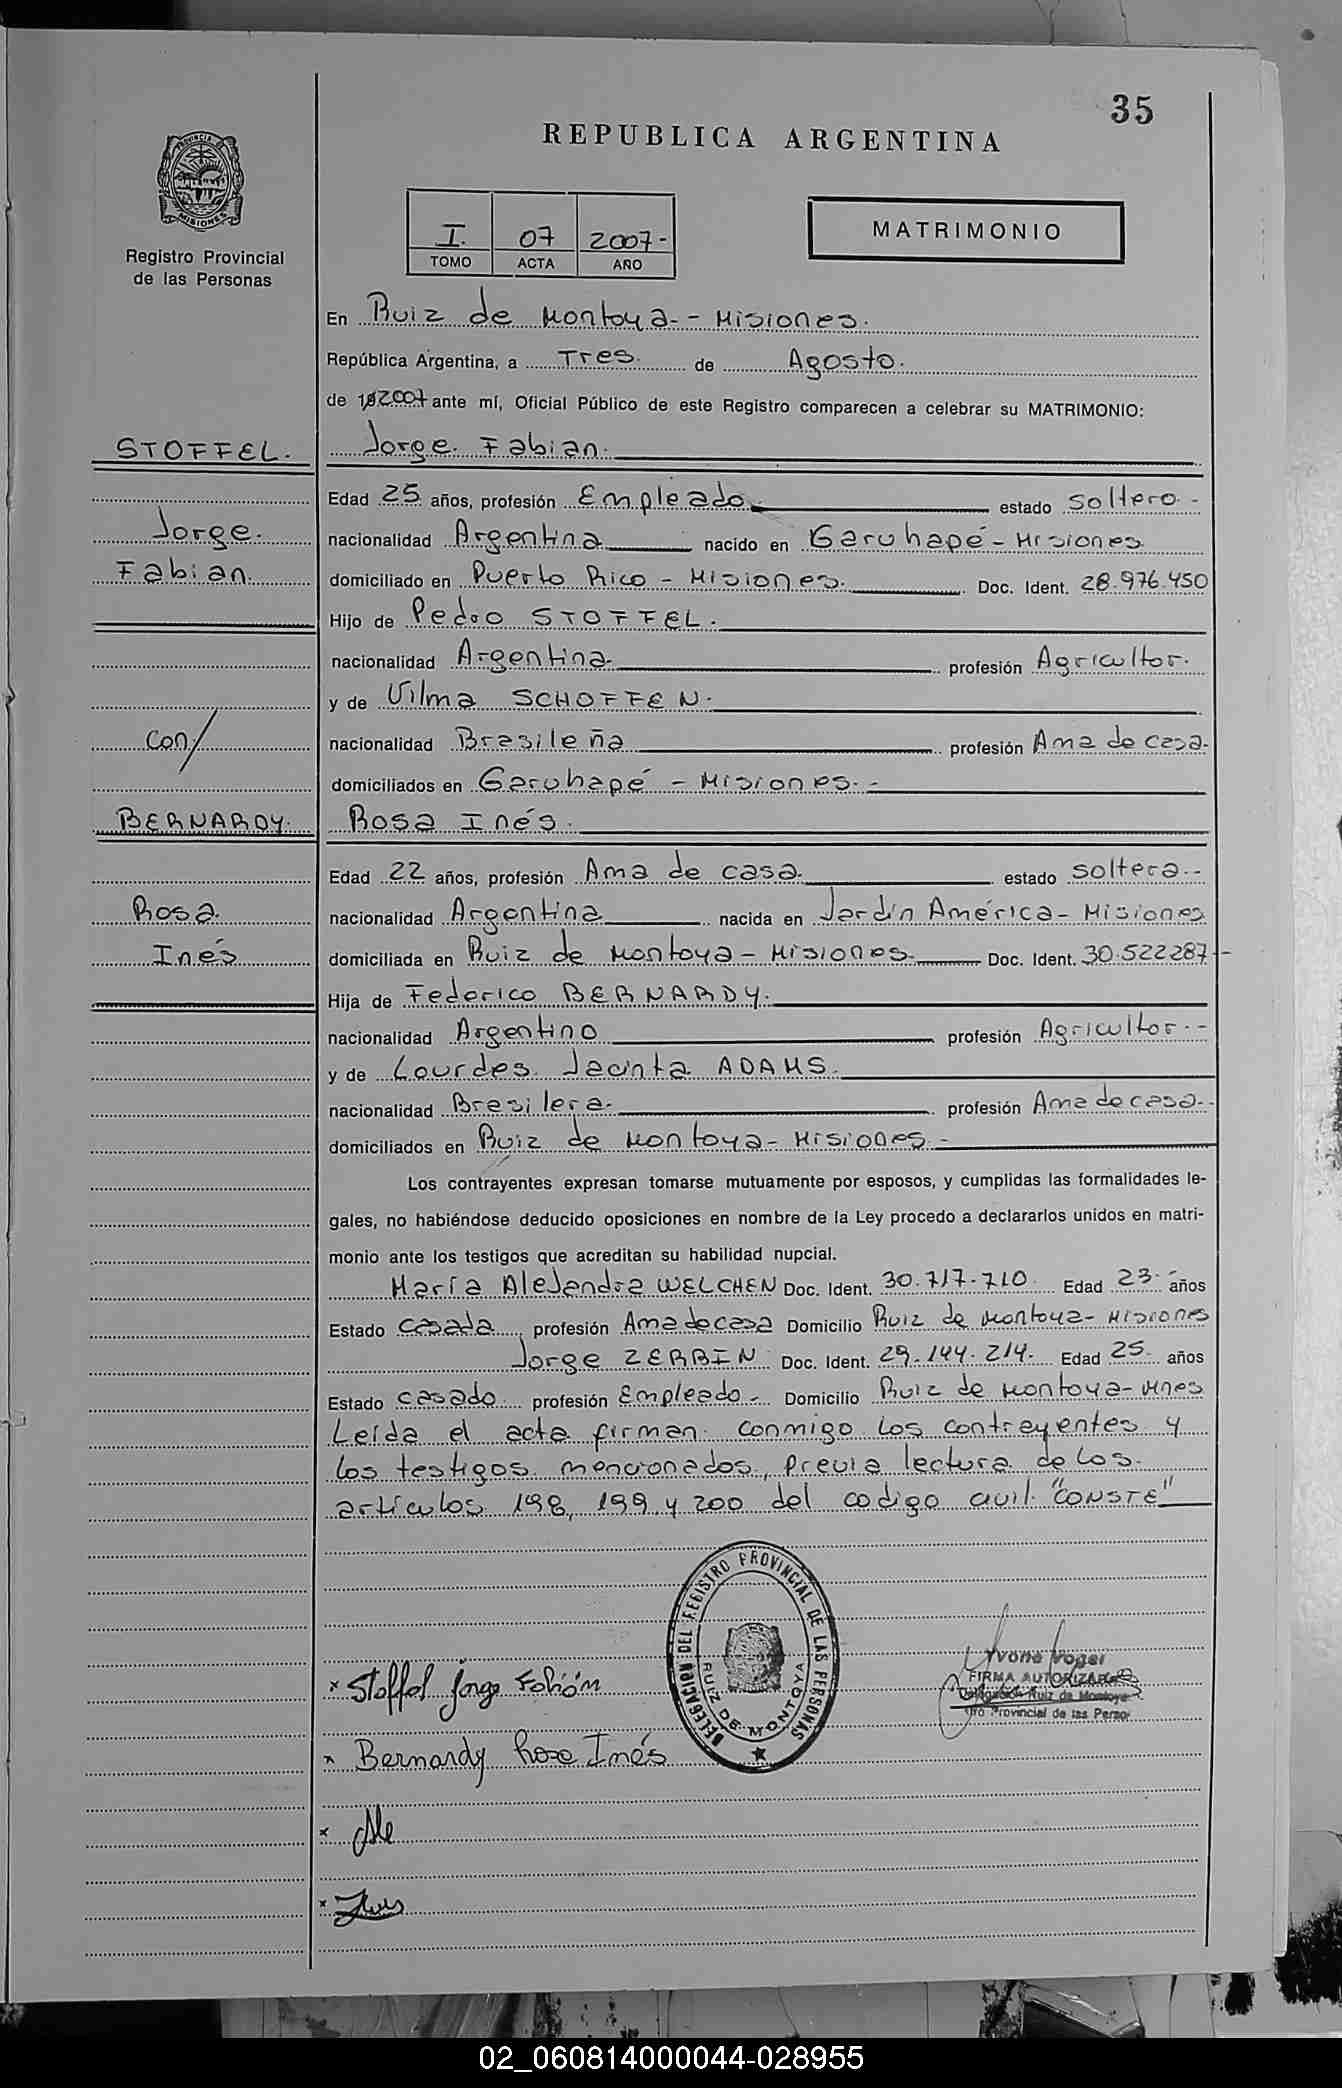 35
REPUBLICA ARGENTINA
PROVINCIA DE MISIONES
Registro Provincial
de las Personas
I. 07 2007-
TOMO ACTA AÑO
MATRIMONIO
En Ruiz de Montoya.- Misiones.
República Argentina, a Tres. de Agosto.
de 2007 ante mí, Oficial Público de este Registro comparecen a celebrar su MATRIMONIO:
STOFFEL. Jorge. Fabian.
Edad 25 años, profesión Empleado. estado soltero.-
Jorge. nacionalidad Argentina nacido en Garuhapé - Misiones
Fabian. domiciliado en Puerto Rico - Misiones. Doc. Ident. 28.976.450
Hijo de Pedro STOFFEL.
nacionalidad Argentina. profesión Agricultor.
y de Vilma SCHOFFEN.
con/ nacionalidad Brasileña profesión Ama de casa.
domiciliados en Garuhapé - Misiones.-
BERNARDY. Rosa Inés.
Edad 22 años, profesión Ama de casa. estado soltera.-
Rosa nacionalidad Argentina nacida en Jardín América - Misiones
Inés domiciliada en Ruiz de Montoya - Misiones. Doc. Ident. 30.522287-
Hija de Federico BERNARDY.
nacionalidad Argentino profesión Agricultor.-
y de Lourdes. Jacinta ADAMS.
nacionalidad Brasilera. profesión Ama de casa.-
domiciliados en Ruiz de Montoya - Misiones.-
Los contrayentes expresan tomarse mutuamente por esposos, y cumplidas las formalidades le-
gales, no habiéndose deducido oposiciones en nombre de la Ley procedo a declararlos unidos en matri-
monio ante los testigos que acreditan su habilidad nupcial.
María Alejandra WELCHEN Doc. Ident. 30.717.710. Edad 23. años
Estado casada profesión Ama de casa Domicilio Ruiz de Montoya - Misiones
Jorge ZERBIN Doc. Ident. 29.144.214. Edad 25. años
Estado casado profesión Empleado.- Domicilio Ruiz de Montoya - Mnes
Leída el acta firman conmigo los contrayentes y
los testigos mencionados, previa lectura de los.
artículos 198, 199 y 200 del codigo civil. "CONSTE"
DELEGACION DEL REGISTRO PROVINCIAL DE LAS PERSONAS
RUIZ DE MONTOYA
FIRMA AUTORIZADA
Delegación Ruiz de Montoya
Provincial de las Perso
x Stoffel Jorge Fabián
x Bernardy Rosa Inés
x Ale
x
02_060814000044-028955